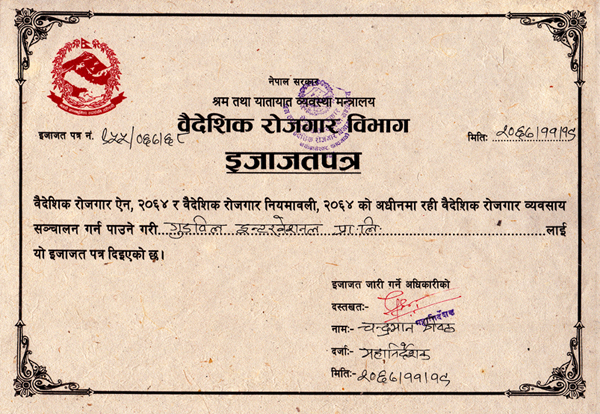 नेपाल सरकार
श्रम तथा यातायात व्यवस्था मन्त्रालय
वैदेशिक रोजगार विभाग
इजाजत पत्र नं.
मिति: २०६७/११/१९
इजाजतपत्र
वैदेशिक रोजगार ऐन, २०६४ र वैदेशिक रोजगार नियमावली, २०६४ को अधीनमा रही वैदेशिक रोजगार व्यवसाय
सञ्चालन गर्न पाउने गरी गुडविल इन्टरनेशनल प्रा.लि. लाई
यो इजाजत पत्र दिइएको छ।
इजाजत जारी गर्ने अधिकारीको
दस्तखत:-
महानिर्देशक
नाम:- चन्द्रमान
दर्जा:- महानिर्देशक
मिति:- २०६७/११/१९